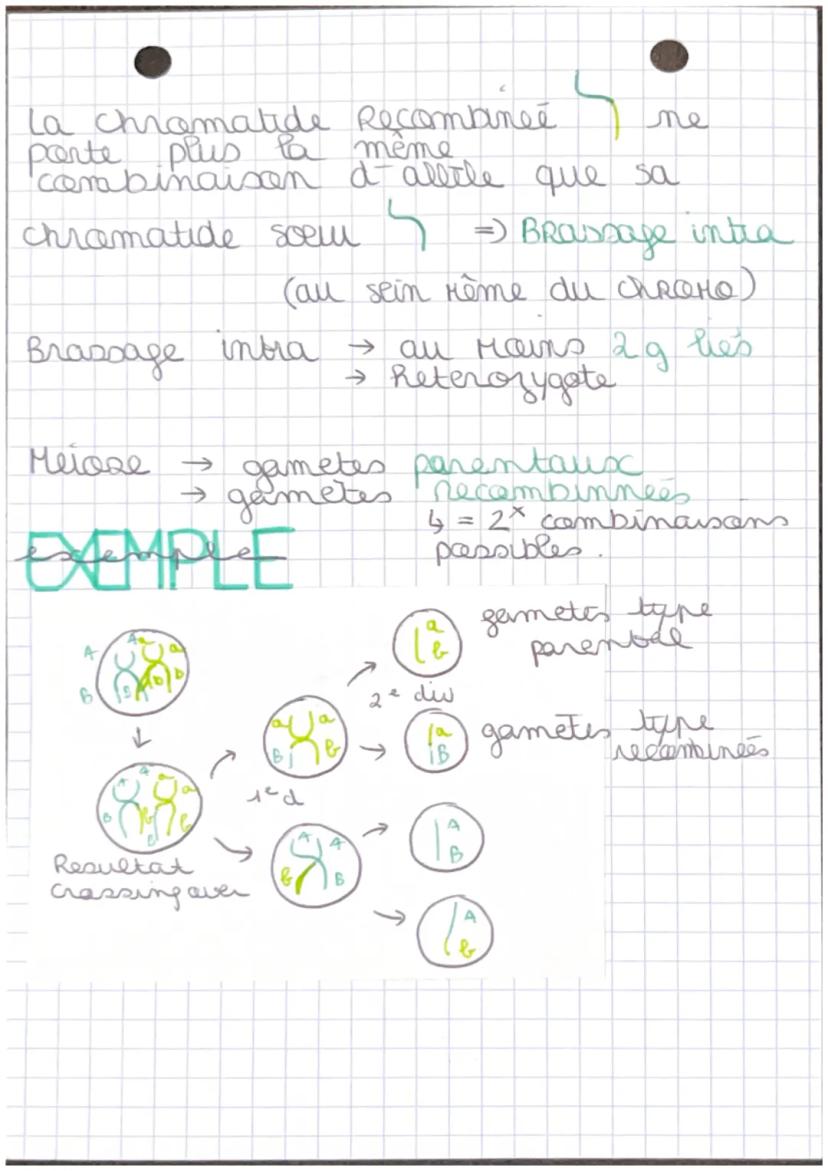 La chromatide Recombineé ne
porte plus la même
combinaison d-allèle que sa
chromatide soeur => BRassage intra
(au sein même du CHROMO)
Brassage intra → au moins 2g liés
→ heterozygote
Meiose → gametes parentaux
→ gametes recombinneés
↳ = 2ˣ combinaisons
possibles.
EXEMPLE
exemple
gametes type
parental
A A a a
B B b b
a
b
2ᵉ div
gametes type
recombineés
a a
B b
a
B
1ᵉ d
A A a a
B b B b
A
B
A A
b B
Resultat
Crossing over
A
b